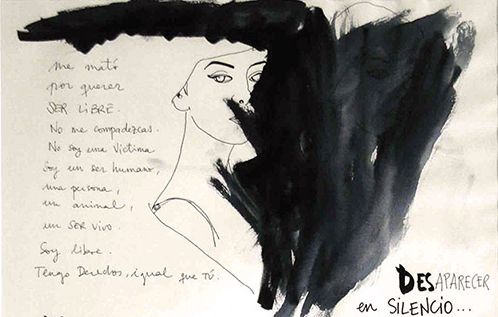 me mató
por querer
SER LIBRE.
No me compadezcas.
No soy una víctima
Soy un ser humano,
una persona,
un animal,
un SER VIVO.
Soy libre.
Tengo Derechos, igual que TÚ.
DESAPARECER
en SILENCIO...